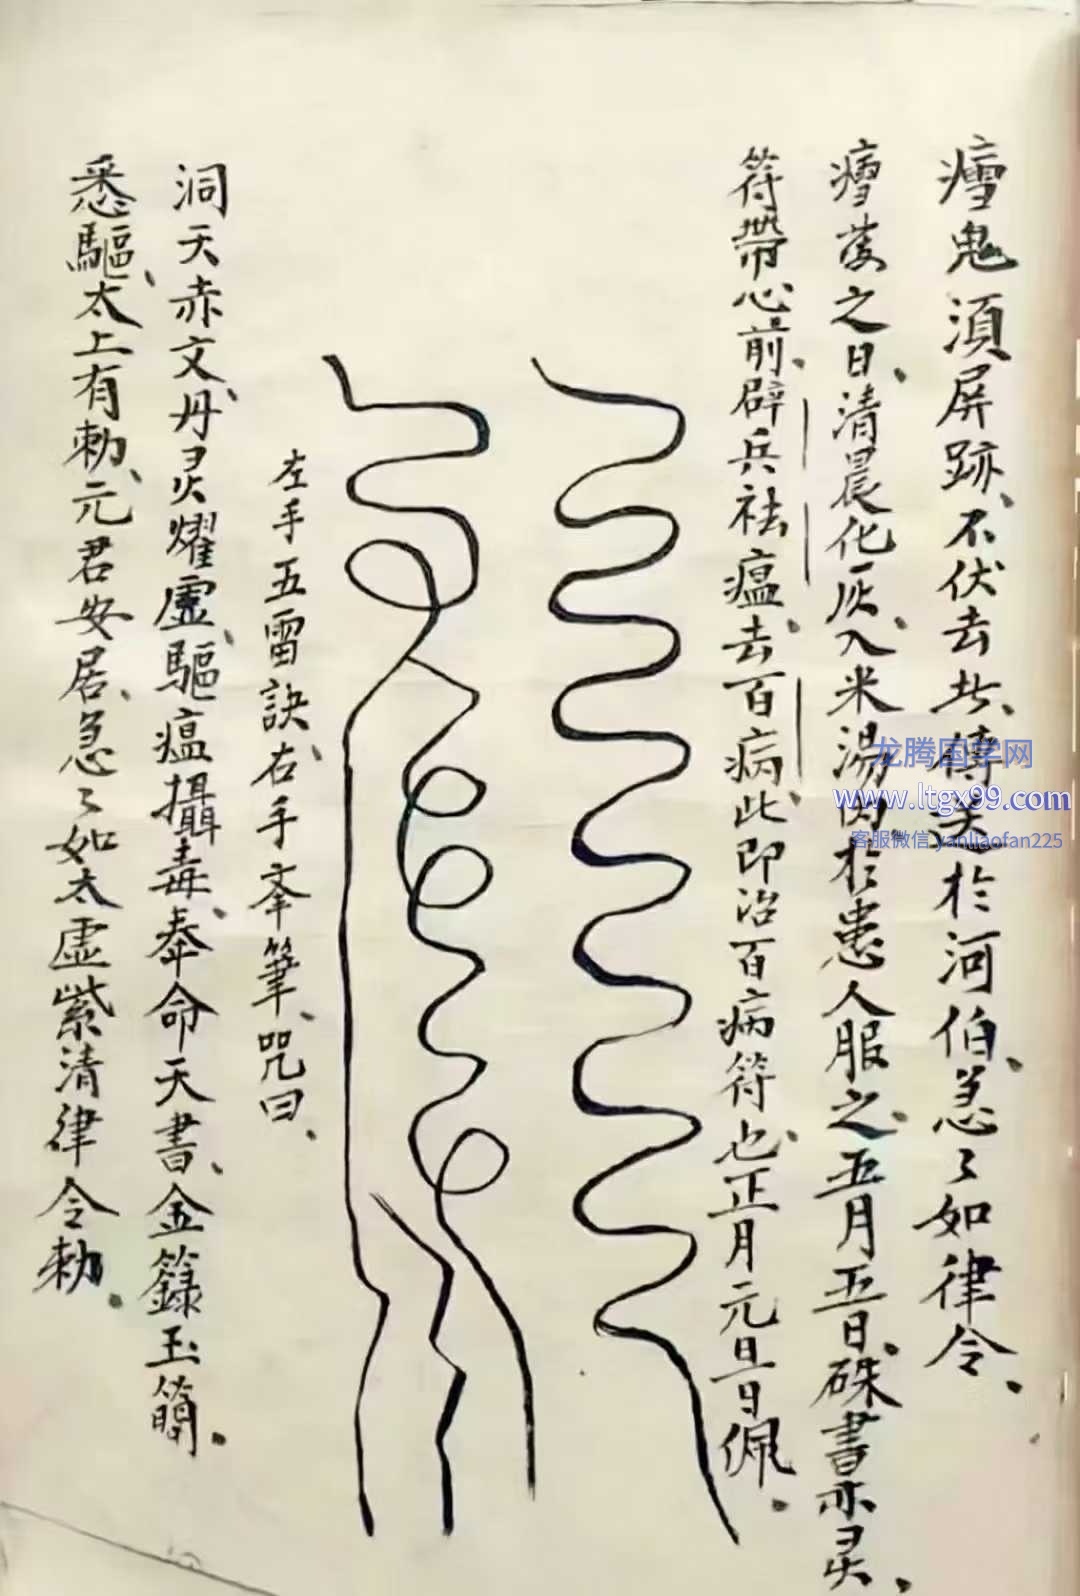 瘧鬼須屏跡、不伏去此、傳送於河伯、急々如律令、
瘧發之日、清晨化灰、入米湯內、於患人服之、五月五日、硃書亦灵、
符帶心前、辟兵祛瘟、去百病、此即治百病符也、正月元旦日佩、
左手五雷訣、右手拿筆、咒曰、
洞天赤文、丹灵耀虛、驅瘟攝毒、奉命天書、金籙玉簡、
悉驅、太上有勅、元君安居、急々如太虛紫清律令勅、
龙腾国学网
www.ltgx99.com
客服微信 yanliaofan225